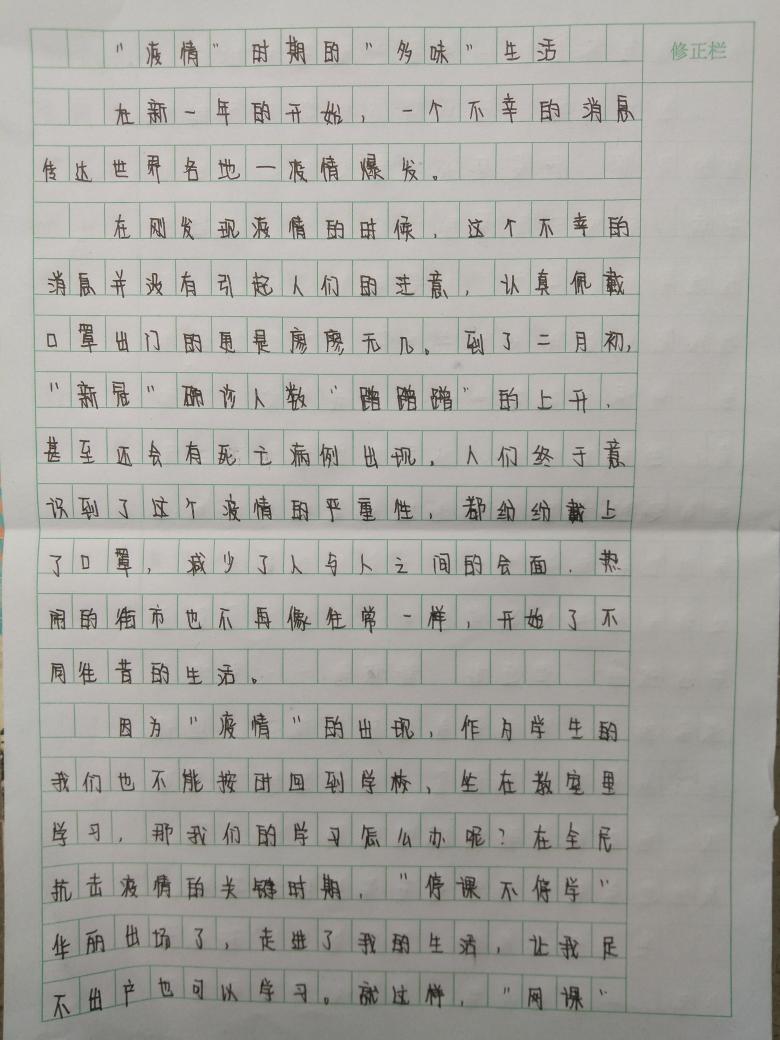 “疫情”时期的“多味”生活
修正栏
在新一年的开始，一个不幸的消息
传达世界各地—疫情爆发。
在刚发现疫情的时候，这个不幸的
消息并没有引起人们的注意，认真佩戴
口罩出门的更是廖廖无几。到了二月初，
“新冠”确诊人数“蹭蹭蹭”的上升，
甚至还会有死亡病例出现，人们终于意
识到了这个疫情的严重性，都纷纷戴上
了口罩，减少了人与人之间的会面，热
闹的街市也不再像往常一样，开始了不
同往昔的生活。
因为“疫情”的出现，作为学生的
我们也不能按时回到学校，坐在教室里
学习，那我们的学习怎么办呢？在全民
抗击疫情的关键时期，“停课不停学”
华丽出场了，走进了我的生活，让我足
不出户也可以学习。就这样，“网课”